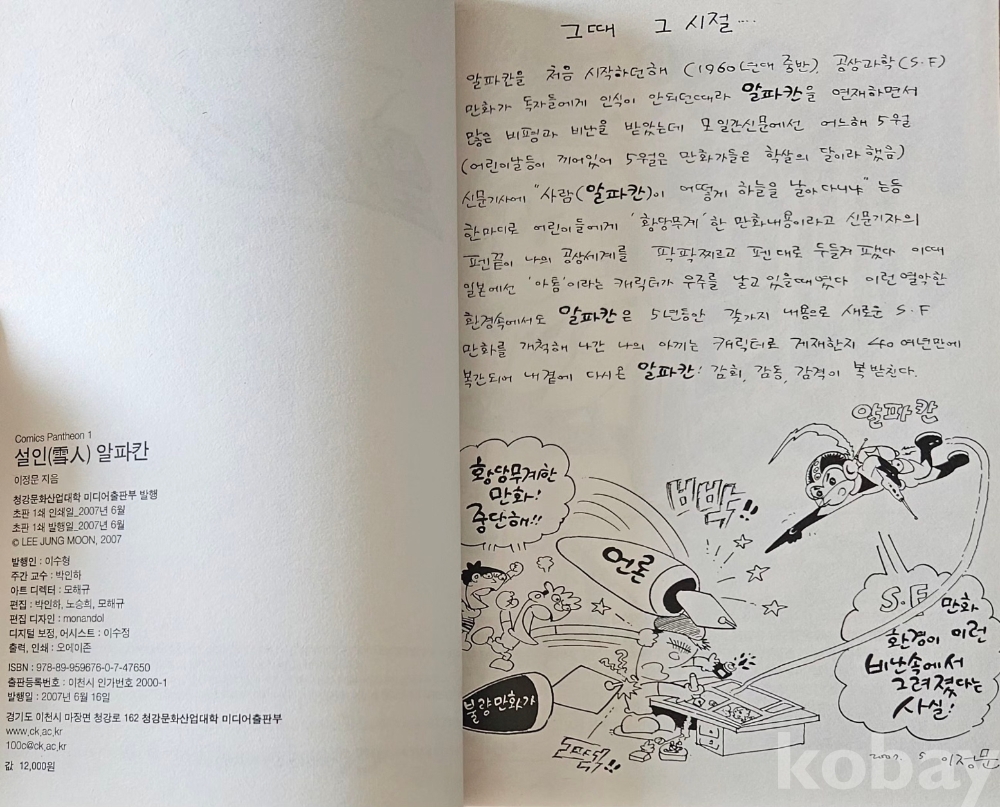 Comics Pantheon 1
설인(雪人) 알파칸
이정문 지음
청강문화산업대학 미디어출판부 발행
초판 1쇄 인쇄일_2007년 6월
초판 1쇄 발행일_2007년 6월
© LEE JUNG MOON, 2007
발행인 : 이수형
주간 교수 : 박인하
아트 디렉터 : 모해규
편집 : 박인하, 노승희, 모해규
편집 디자인 : monandol
디지털 보정, 어시스트 : 이수정
출력, 인쇄 : 오에이존
ISBN : 978-89-959676-0-7-47650
출판등록번호 : 이천시 인가번호 2000-1
발행일 : 2007년 6월 16일
경기도 이천시 마장면 청강로 162 청강문화산업대학 미디어출판부
www.ck.ac.kr
100c@ck.ac.kr
값 12,000원
그때 그 시절....
알파칸을 처음 시작하던해 (1960년대 중반). 공상과학(S.F)
만화가 독자들에게 인식이 안되던때라 알파칸을 연재하면서
많은 비평과 비난을 받았는데 모일간신문에선 어느해 5월
(어린이날등이 끼어있어 5월은 만화가들은 학살의 달이라 했음)
신문기사에 "사람(알파칸)이 어떻게 하늘을 날아다니냐" 는등
한마디로 어린이들에게 '황당무계'한 만화내용이라고 신문기자의
펜끝이 나의 공상세계를 팍팍찌르고 펜대로 두들겨 팼다 이때
일본에선 '아톰'이라는 캐릭터가 우주를 날고있을때였다 이런열악한
환경속에서도 알파칸은 5년동안 갖가지 내용으로 새로운 S.F
만화를 개척해 나간 나의 아끼는 캐릭터로 게재한지 40여년만에
복간되어 내곁에 다시온 알파칸! 감회, 감동, 감격이 복받친다.
알파칸
황당무계한
만화!
중단해!!
언론
S.F 만화
환경이 이런
비난속에서
그려졌다는
사실!
불량만화가
2007. 5 이정문
kobay